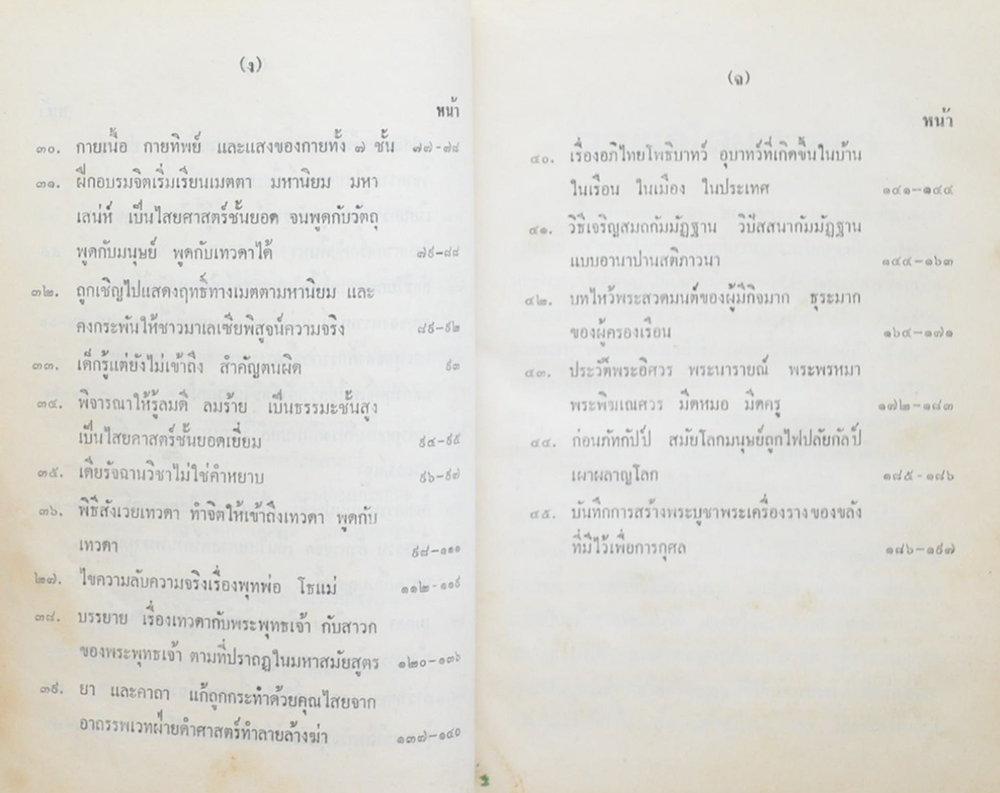 (ง)
หน้า
๓๐. กายเนื้อ กายทิพย์ และแสงของกายทั้ง ๗ ชั้น ๗๗-๗๘
๓๑. ฝึกอบรมจิตเริ่มเรียนเมตตา มหานิยม มหา
เสน่ห์ เป็นไสยศาสตร์ชั้นยอด จนพูดกับวัตถุ
พูดกับมนุษย์ พูดกับเทวดาได้ ๗๙-๘๘
๓๒. ถูกเชิญไปแสดงฤทธิ์ทางเมตตามหานิยม และ
คงกระพันให้ชาวมาเลเซียพิสูจน์ความจริง ๘๙-๙๒
๓๓. เด็กรู้แต่ยังไม่เข้าถึง สำคัญตนผิด ๙๓
๓๔. พิจารณาให้รู้ลมดี ลมร้าย เป็นธรรมะชั้นสูง
เป็นไสยศาสตร์ชั้นยอดเยี่ยม ๙๔-๙๕
๓๕. เดียรัจฉานวิชาไม่ใช่คำหยาบ ๙๖-๙๗
๓๖. พิธีสังเวยเทวดา ทำจิตให้เข้าถึงเทวดา พูดกับ
เทวดา ๙๘-๑๑๑
๒๗. ไขความลับความจริงเรื่องพุทพ่อ โธแม่ ๑๑๒-๑๑๙
๓๘. บรรยาย เรื่องเทวดากับพระพุทธเจ้า กับสาวก
ของพระพุทธเจ้า ตามที่ปราถฏในมหาสมัยสูตร ๑๒๐-๑๓๖
๓๙. ยา และคาถา แก้ถูกกระทำด้วยคุณไสยจาก
อาถรรพเวทฝ่ายดำศาสตร์ทำลายล้างฆ่า ๑๓๗-๑๔๐
(ฉ)
หน้า
๔๐. เรื่องอภิไทยโพธิบาทว์ อุบาทว์ที่เกิดขึ้นในบ้าน
ในเรือน ในเมือง ในประเทศ ๑๔๑-๑๔๔
๔๑. วิธีเจริญสมถกัมมัฏฐาน วิปัสสนากัมมัฏฐาน
แบบอานาปานสติภาวนา ๑๔๔-๑๖๓
๔๒. บทไหว้พระสวดมนต์ของผู้มีกิจมาก ธุระมาก
ของผู้ครองเรือน ๑๖๔-๑๗๑
๔๓. ประวัติพระอิศวร พระนารายณ์ พระพรหมา
พระพิฆเณศวร มีดหมอ มีดครู ๑๗๒-๑๘๓
๔๔. ก่อนภัทกัปป์ สมัยโลกมนุษย์ถูกไฟปลัยกัลป์
เผาผลาญโลก ๑๘๕-๑๘๖
๔๕. บันทึกการสร้างพระบูชาพระเครื่องรางของขลัง
ที่มีไว้เพื่อการกุศล ๑๘๖-๑๙๗